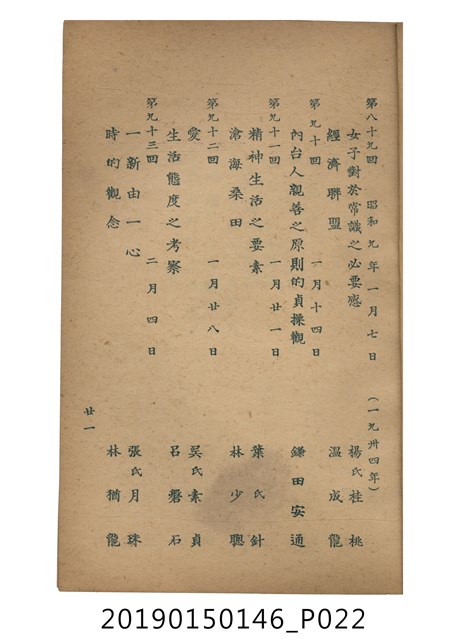 第八十九回　昭和九年一月七日　(一九卅四年)
女子對於常識之必要應　楊氏桂桃
經濟聯盟　溫成龍
第九十回　一月十四日
內台人親善之原則的貞操觀　鎌田安通
第九十一回　一月廿一日
精神生活之要素　葉氏針
滄海桑田　林少聰
第九十二回　一月廿八日
愛　吳氏素貞
生活態度之考察　呂磐石
第九十三回　二月四日
一新由一心　張氏月珠
時的觀念　林猶龍
廿一
20190150146_P022